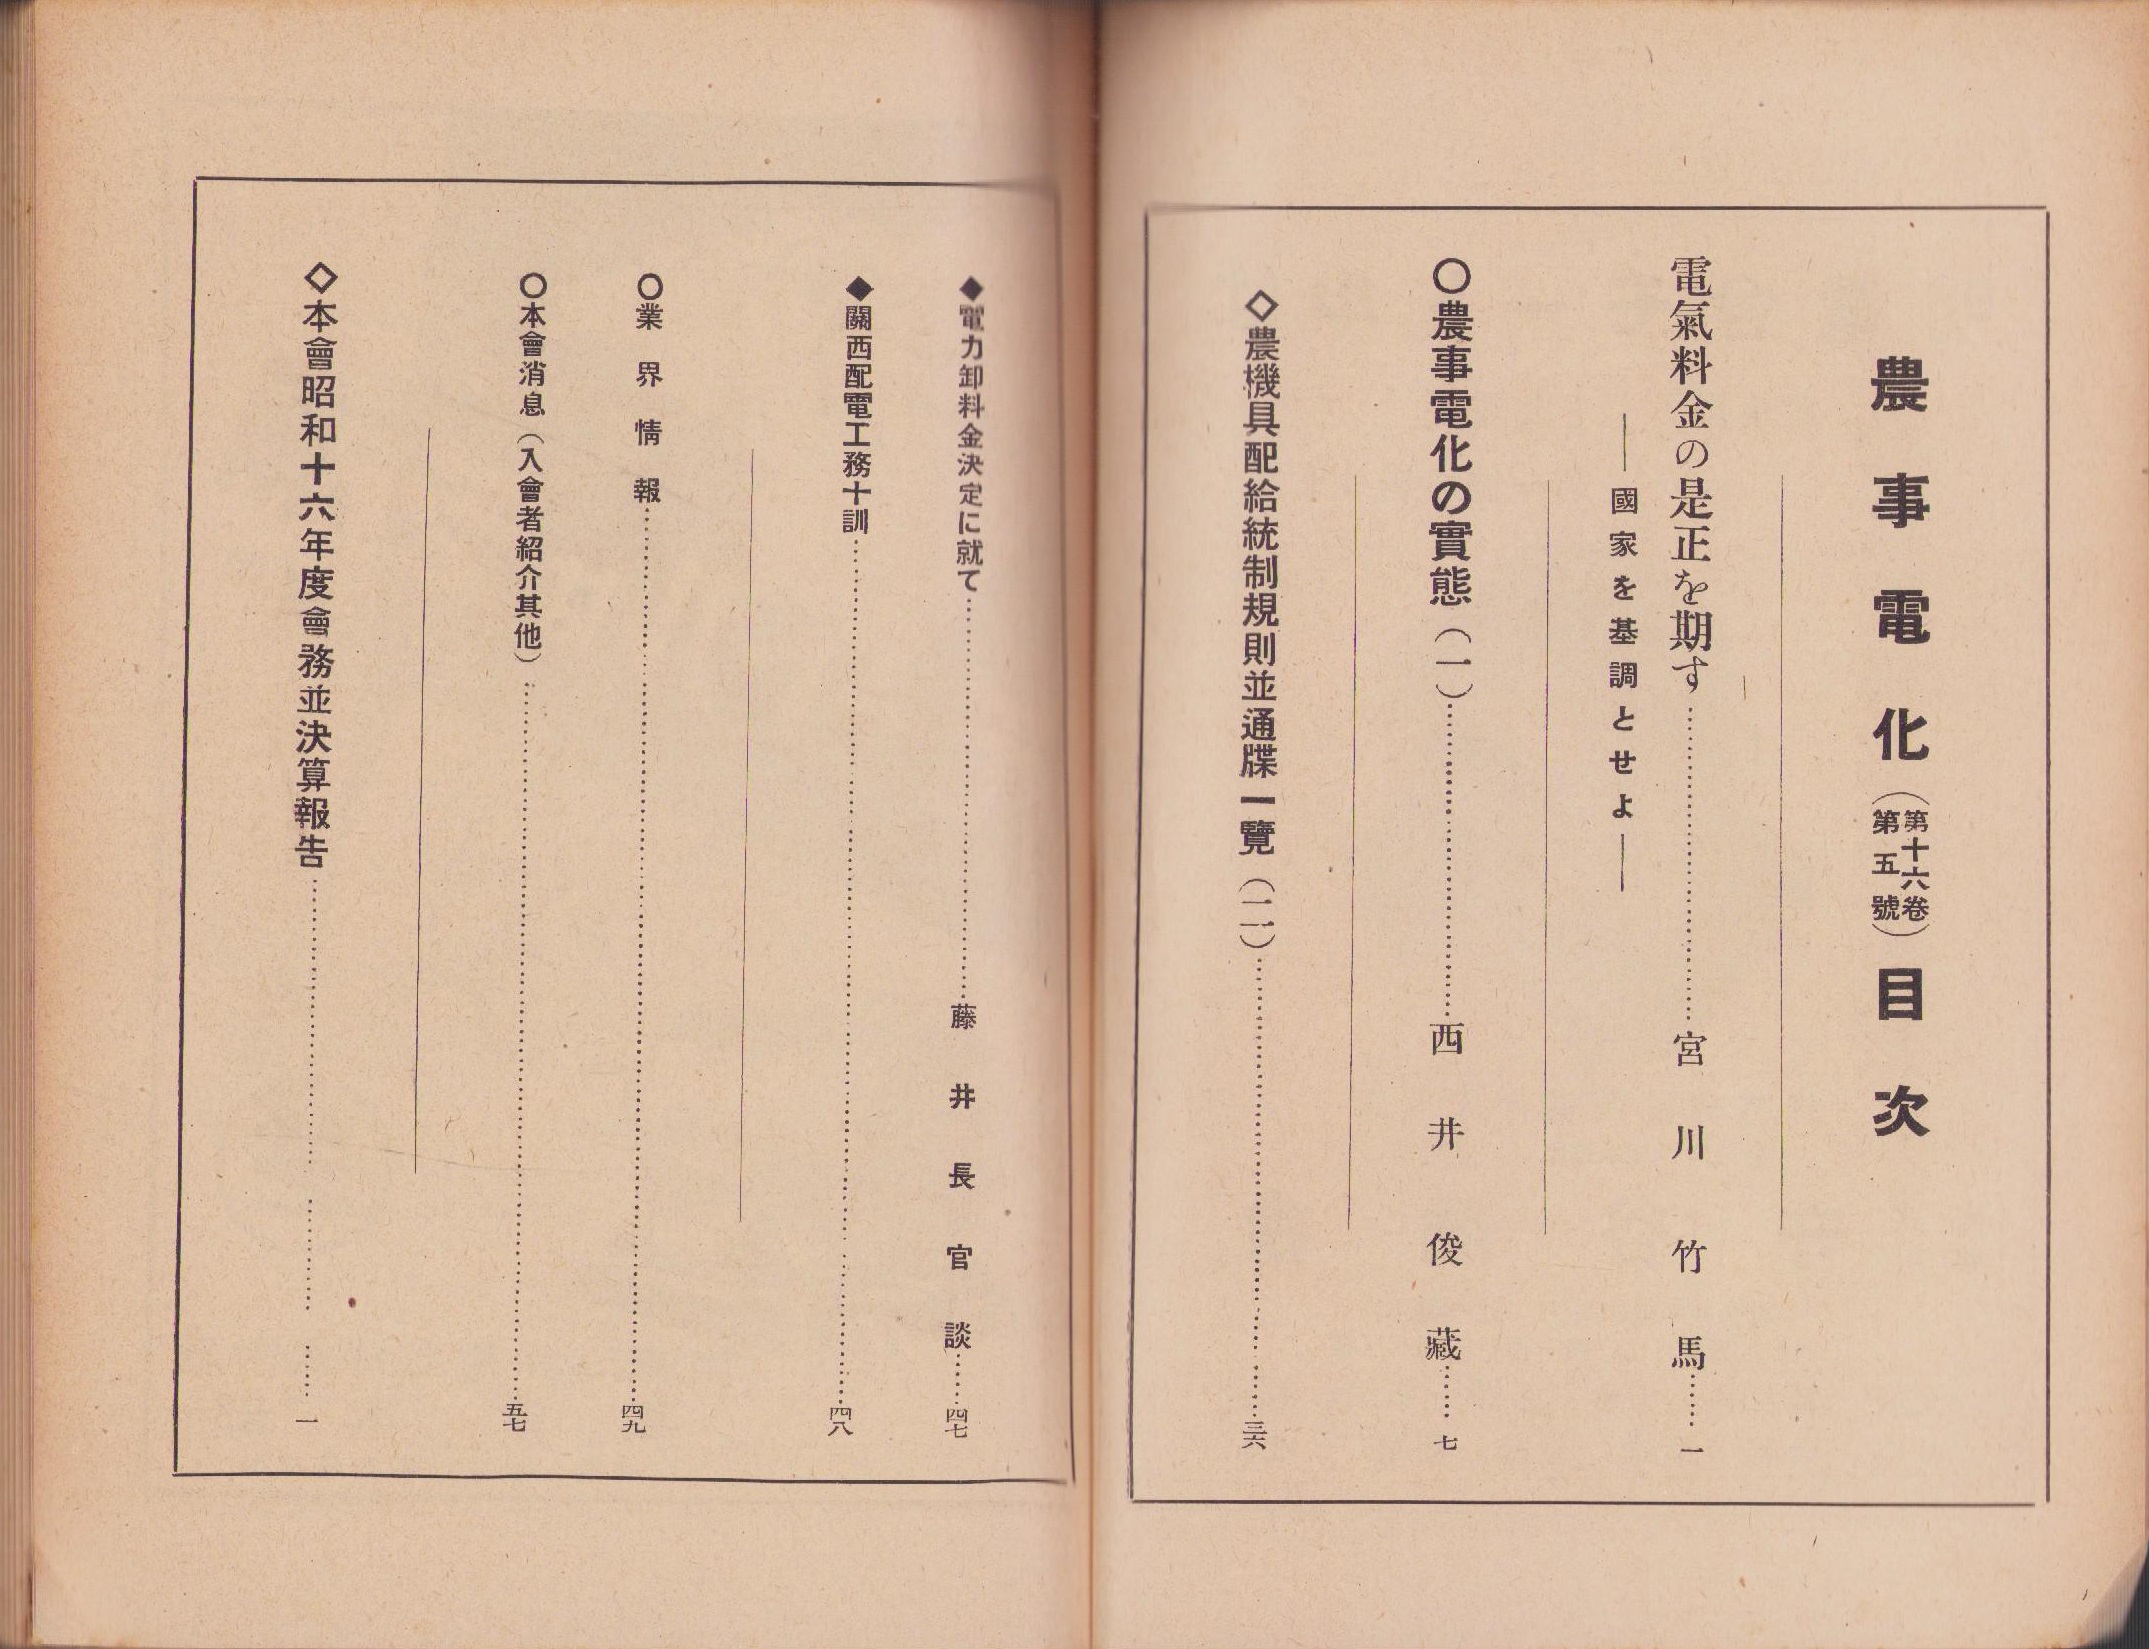 農事電化(第十六卷第五號)目次
電氣料金の是正を期す……宮川竹馬……一
——國家を基調とせよ——
〇農事電化の實態(一)……西井俊藏……七
◇農機具配給統制規則並通牒一覽(二)……三六
◆電力卸料金決定に就て……藤井長官談……四七
◆關西配電工務十訓……四八
〇業界情報……四九
〇本會消息(入會者紹介其他)……五七
◇本會昭和十六年度會務並決算報告……一